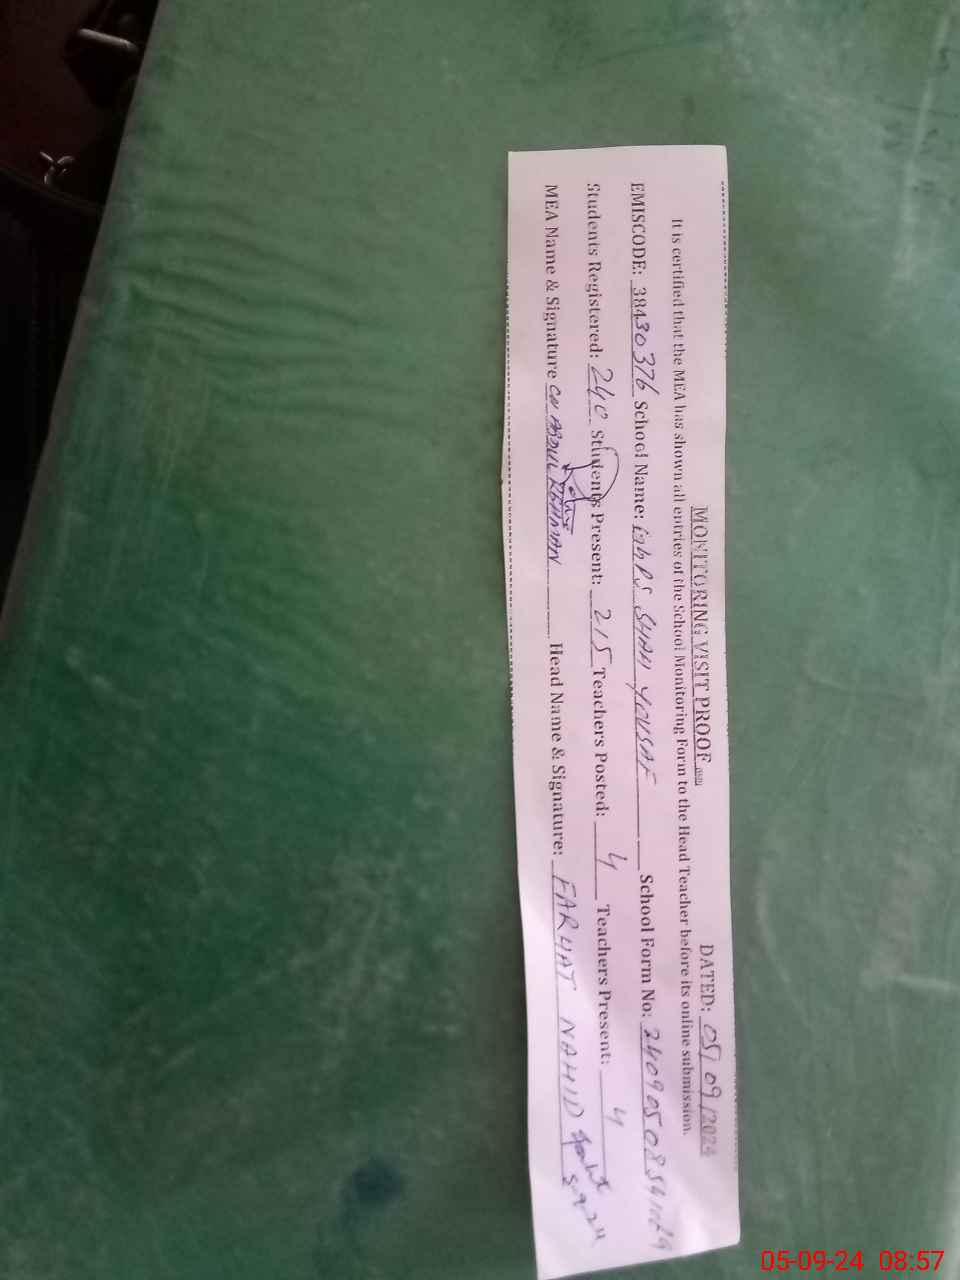 MONITORING VISIT PROOF DATED: 05/09/2024
It is certified that the MEA has shown all entries of the School Monitoring Form to the Head Teacher before its online submission.
EMISCODE: 38430376 School Name: GGPS SHAH YOUSAF School Form No:
Students Registered: 240 Students Present: 215 Teachers Posted: 4 Teachers Present: 4
MEA Name & Signature CH ABDUL REHMAN Head Name & Signature: FARHAT NAHID
5.9.24
05-09-24 08:57